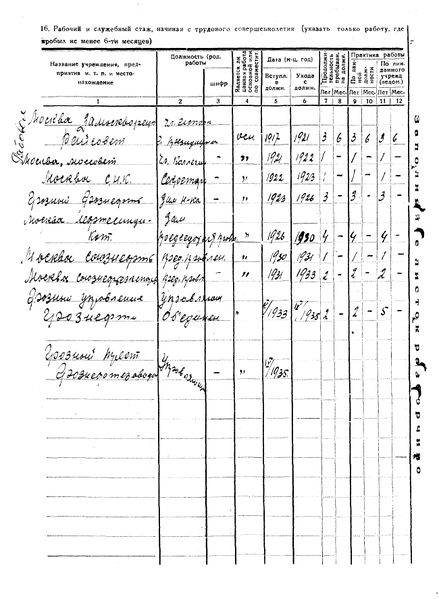 16. Рабочий и служебный стаж, начиная с трудового совершеннолетия (указать только работу, где
пробыл не менее 6-ти месяцев)
Название учреждения, пред-
приятия и т. п. и место-
нахождение
Должность (род.
работы)
шифр
Является ли
данная работа
основной или
по совместит.
Дата (м-ц, год)
Вступл.
в
должн.
Ухода
с
должн.
Продолжи-
тельность
пребыван.
в должн.
Лет Мес.
Практика работы
По дан-
ной
долж-
ности
Лет Мес.
По дан.
учрежд
(ведом.)
Лет Мес.
1 2 3 4 5 6 7 8 9 10 11 12
Москва Замоскворецк
Райсовет Президиума – осн 1917 1921 3 6 3 6 3 6
Москва, моссовет Чл. Коллегии – „ 1921 1922 1 - 1 - 1 -
Москва С.Н.К. Секретарь – „ 1922 1923 1 - 1 - 1 -
Грозный Грознефть Зам н-ка – „ 1923 1926 3 - 3 - 3 -
Москва Нефтесинди-
кат. Зам
Председателя Прав. „ 1926 1930 4 - 4 - 4 -
Москва Союзнефть Пред. Правлен. – „ 1930 1931 1 - 1 - 1 -
Москва Союзнефтеэкспорт Пред. Правл – „ 1931 1933 2 - 2 - 2 -
Грозный управление Управляющ
Грознефти Объединен – „ 1933 1935 2 - 2 - 5 -
Грозный
Грознефтезаводы Управляющ – „ 1935
Заполняется листах разборчиво